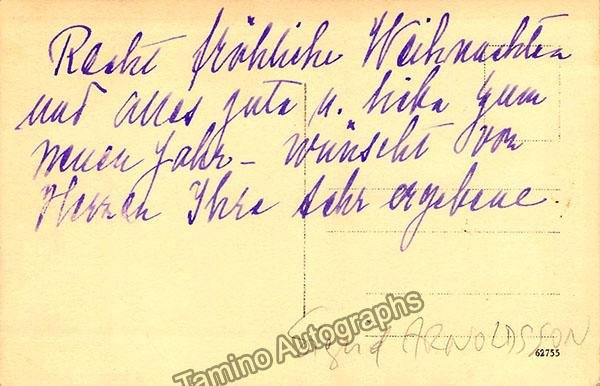 Recht fröhliche Weihnachten
und alles gute u. liebe zum
neuen Jahr – wünscht von
Herzen Ihre sehr ergebene
Sigrid ARNOLDSSON
62755
Tamino Autographs